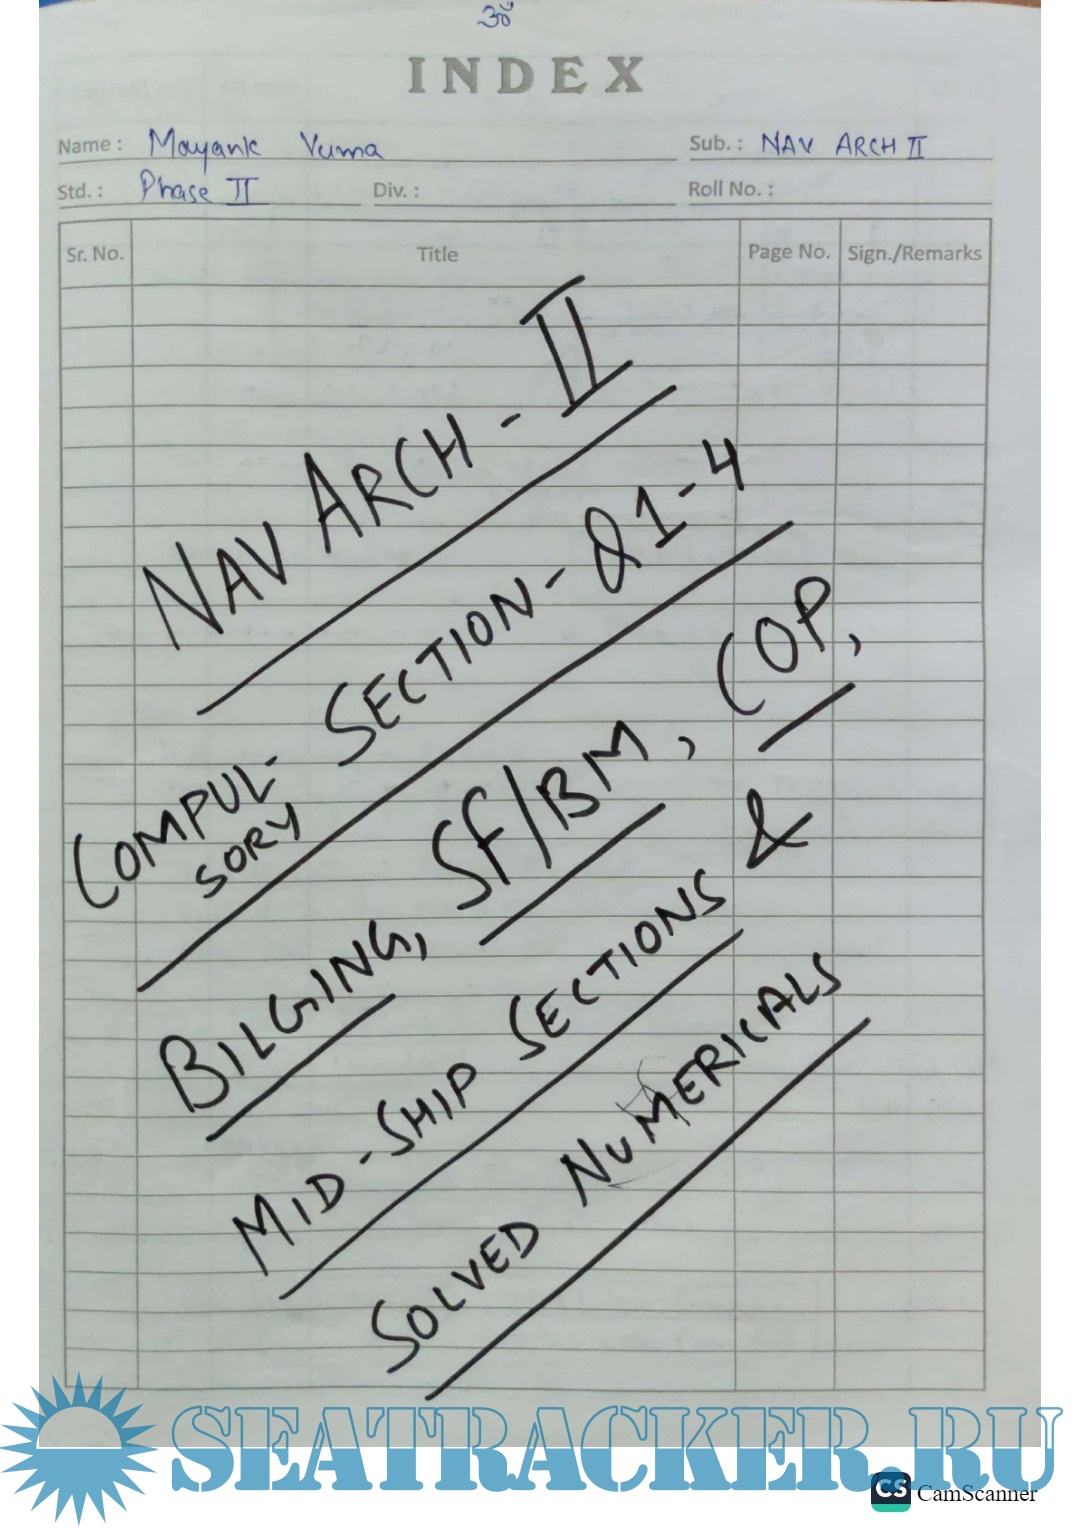 ॐ
INDEX
Name : Mayank Vuma Sub. : NAV ARCH II
Std. : Phase II Div. : Roll No. :
Sr. No. Title Page No. Sign./Remarks
NAV ARCH - II
COMPUL- SECTION - Q1-4
SORY
BILGING, SF/BM, COP,
MID-SHIP SECTIONS &
SOLVED NUMERICALS
SEATRACKER.RU
CS CamScanner